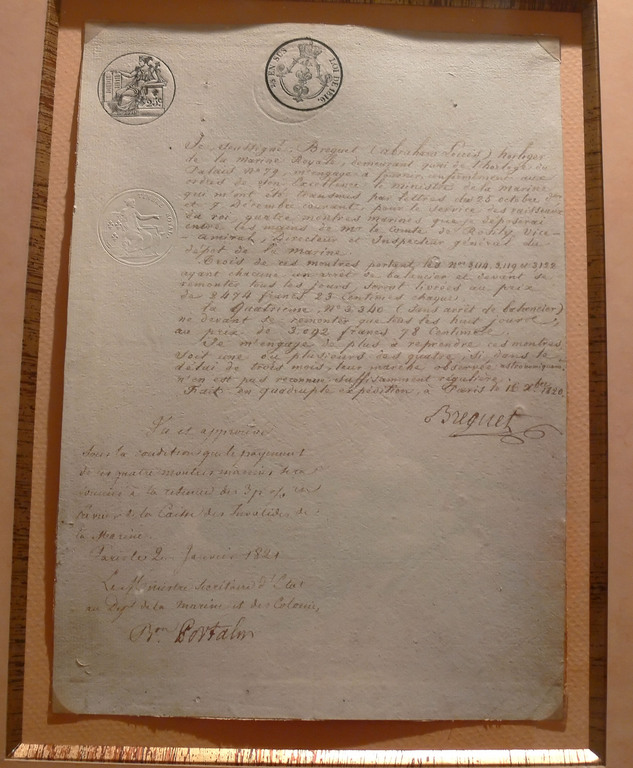 25 EN SUS
LOI DE 1816.
Je soussigné, Breguet (abraham Louis) horloger
de la marine Royale, demeurant quai de l'horloge du
Palais Nº 79, m'engage à fournir, conformément aux
ordres de Son Excellence le ministre de la marine
qui m'ont été transmis par lettres des 25 octobre
et 9 Décembre courant, pour le service des vaisseaux
du roi, quatre montres marines que je déposerai
entre les mains de Mr le Comte de Rosily, Vice-
amiral, Directeur et Inspecteur général du
dépôt de la marine.
Trois de ces montres portant les Nos 3114, 3119 et 3132
ayant chacune un arrêt de balancier et devant se
remonter tous les jours, seront livrées au prix
de 2474 francs 23 Centimes chaque.
La Quatrieme, Nº 3340 (sans arrêt de balancier)
ne devant se remonter que tous les huit jours,
au prix de 3.092 francs 78 Centimes
Je m'engage de plus à reprendre ces montres
soit une ou plusieurs des quatre, si, dans le
délai de trois mois, leur marche observée astronomiquement
n'en est pas reconnue suffisamment régulière.
Fait en quadruple expédition, à Paris le 18 Xbre 1820.
Breguet
Vu et approuvé
Sous la condition que le payement
de ces quatre montres marines sera
soumis à la retenue des 3 p % en
faveur de la Caisse des Invalides de
la Marine.
Paris le 2 Janvier 1821
Le Ministre Secrétaire d'Etat
au Dépt de la marine et des Colonies,
Bon Portalis